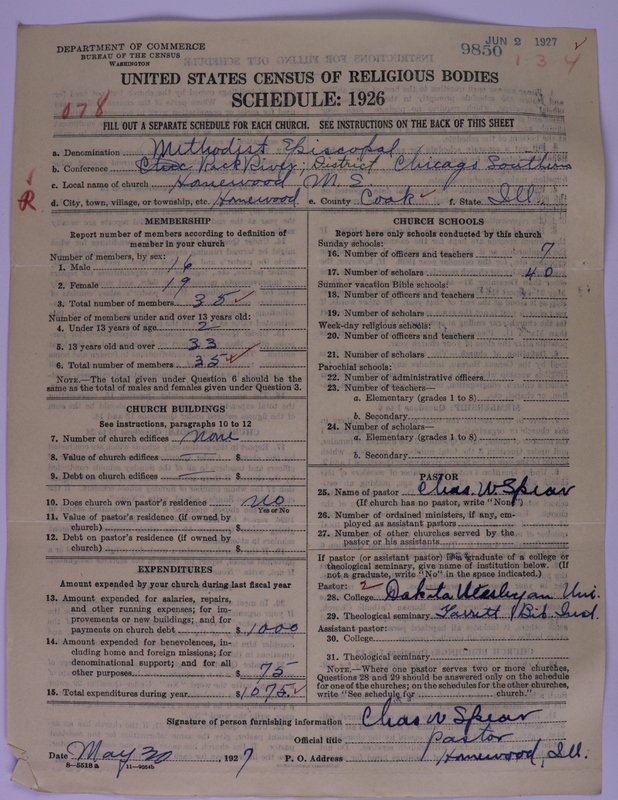 DEPARTMENT OF COMMERCE
BUREAU OF THE CENSUS
WASHINGTON
JUN 2 1927
9850
1-3 4
UNITED STATES CENSUS OF RELIGIOUS BODIES
SCHEDULE: 1926
078
FILL OUT A SEPARATE SCHEDULE FOR EACH CHURCH. SEE INSTRUCTIONS ON THE BACK OF THIS SHEET
a. Denomination Methodist Episcopal
b. Conference Rock River; District Chicago Southern
c. Local name of church Homewood M. E.
d. City, town, village, or township, etc. Homewood e. County Cook f. State Ill.
MEMBERSHIP
Report number of members according to definition of member in your church
Number of members, by sex:
1. Male 16
2. Female 19
3. Total number of members 35 ✓
Number of members under and over 13 years old:
4. Under 13 years of age 2
5. 13 years old and over 33
6. Total number of members 35 ✓
NOTE.—The total given under Question 6 should be the same as the total of males and females given under Question 3.
CHURCH BUILDINGS
See instructions, paragraphs 10 to 12
7. Number of church edifices none
8. Value of church edifices — $
9. Debt on church edifices — $
10. Does church own pastor's residence no
Yes or No
11. Value of pastor's residence (if owned by church) $
12. Debt on pastor's residence (if owned by church) $
EXPENDITURES
Amount expended by church during last fiscal year
13. Amount expended for salaries, repairs, and other running expenses; for improvements or new buildings; and for payments on church debt $1000
14. Amount expended for benevolences, including home and foreign missions; for denominational support; and for all other purposes $75
15. Total expenditures during year $1075 ✓
CHURCH SCHOOLS
Report here only schools conducted by this church
Sunday schools:
16. Number of officers and teachers 7
17. Number of scholars 40
Summer vacation Bible schools:
18. Number of officers and teachers
19. Number of scholars
Week-day religious schools:
20. Number of officers and teachers
21. Number of scholars
Parochial schools:
22. Number of administrative officers
23. Number of teachers—
a. Elementary (grades 1 to 8)
b. Secondary
24. Number of scholars—
a. Elementary (grades 1 to 8)
b. Secondary
PASTOR
25. Name of pastor Chas. W. Spear
(If church has no pastor, write "None")
26. Number of ordained ministers, if any, employed as assistant pastors
27. Number of other churches served by the pastor or his assistants
If pastor (or assistant pastor) is a graduate of a college or theological seminary, give name of institution below. (If not a graduate, write "No" in the space indicated.)
Pastor: 2
28. College Dakota Wesleyan Uni.
29. Theological seminary Garrett Bib. Inst.
Assistant pastor:
30. College
31. Theological seminary
NOTE.—Where one pastor serves two or more churches, Questions 28 and 29 should be answered only on the schedule for one of the churches; on the schedules for the other churches, write "See schedule for church."
Signature of person furnishing information Chas W Spear
Official title Pastor
Date May 30, 1927 P. O. Address Homewood, Ill.
8-5518a 11-9554b